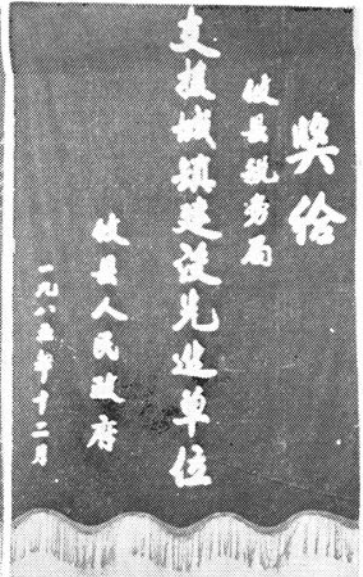 奖给
攸县税务局
支援城镇建设先进单位
攸县人民政府
一九八五年十二月